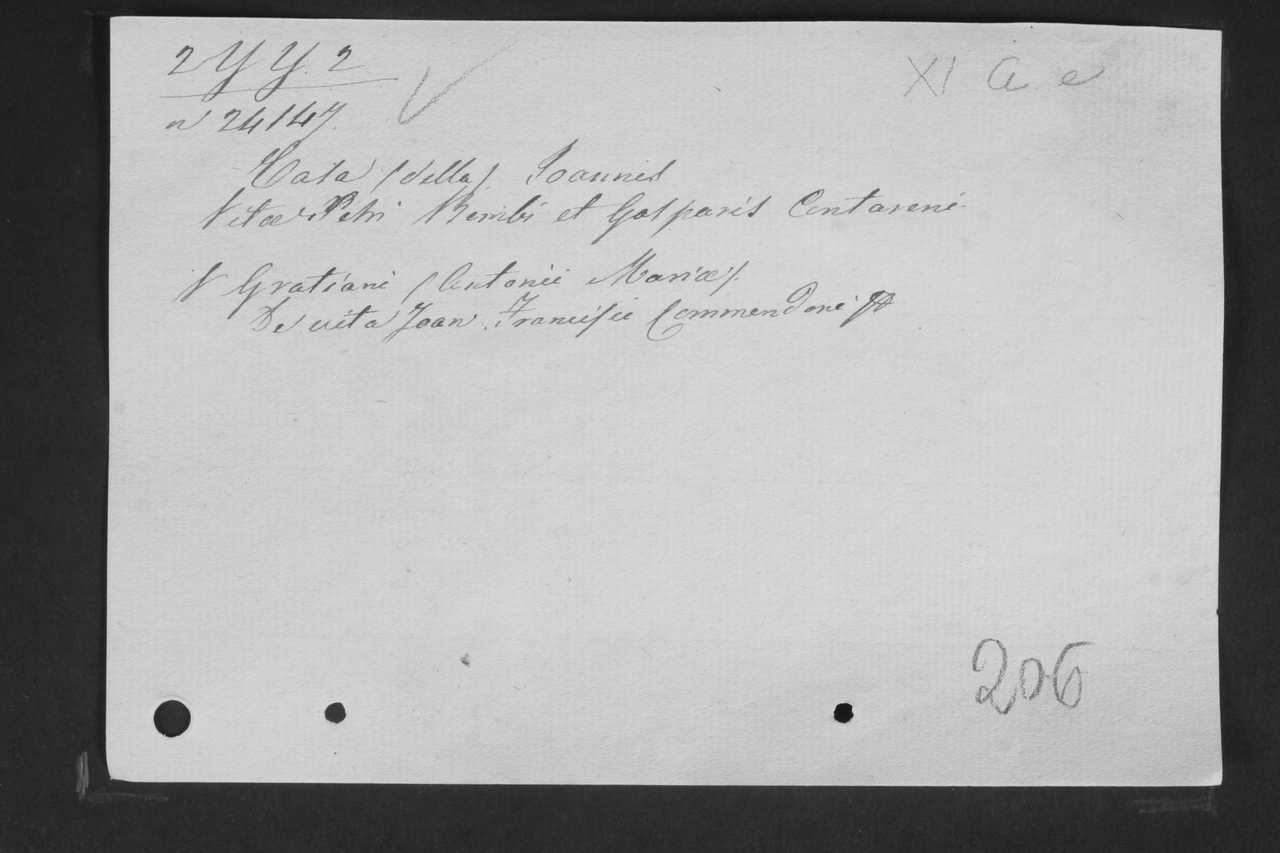 2 Y Y. 2
XI a e
n 24147.
Casa (della) Joannis
Vitæ Petri Bembi et Gasparis Contareni.
V Gratiani (Antonii Mariæ).
De vita Joan. Francisci Commendoni
206